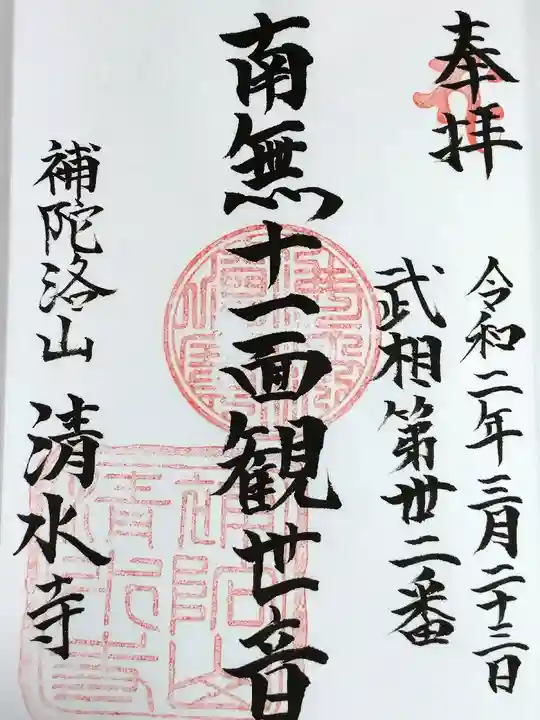 奉拝
令和二年三月二十三日
武相第丗二番
南無十一面観世音
補陀洛山 清水寺